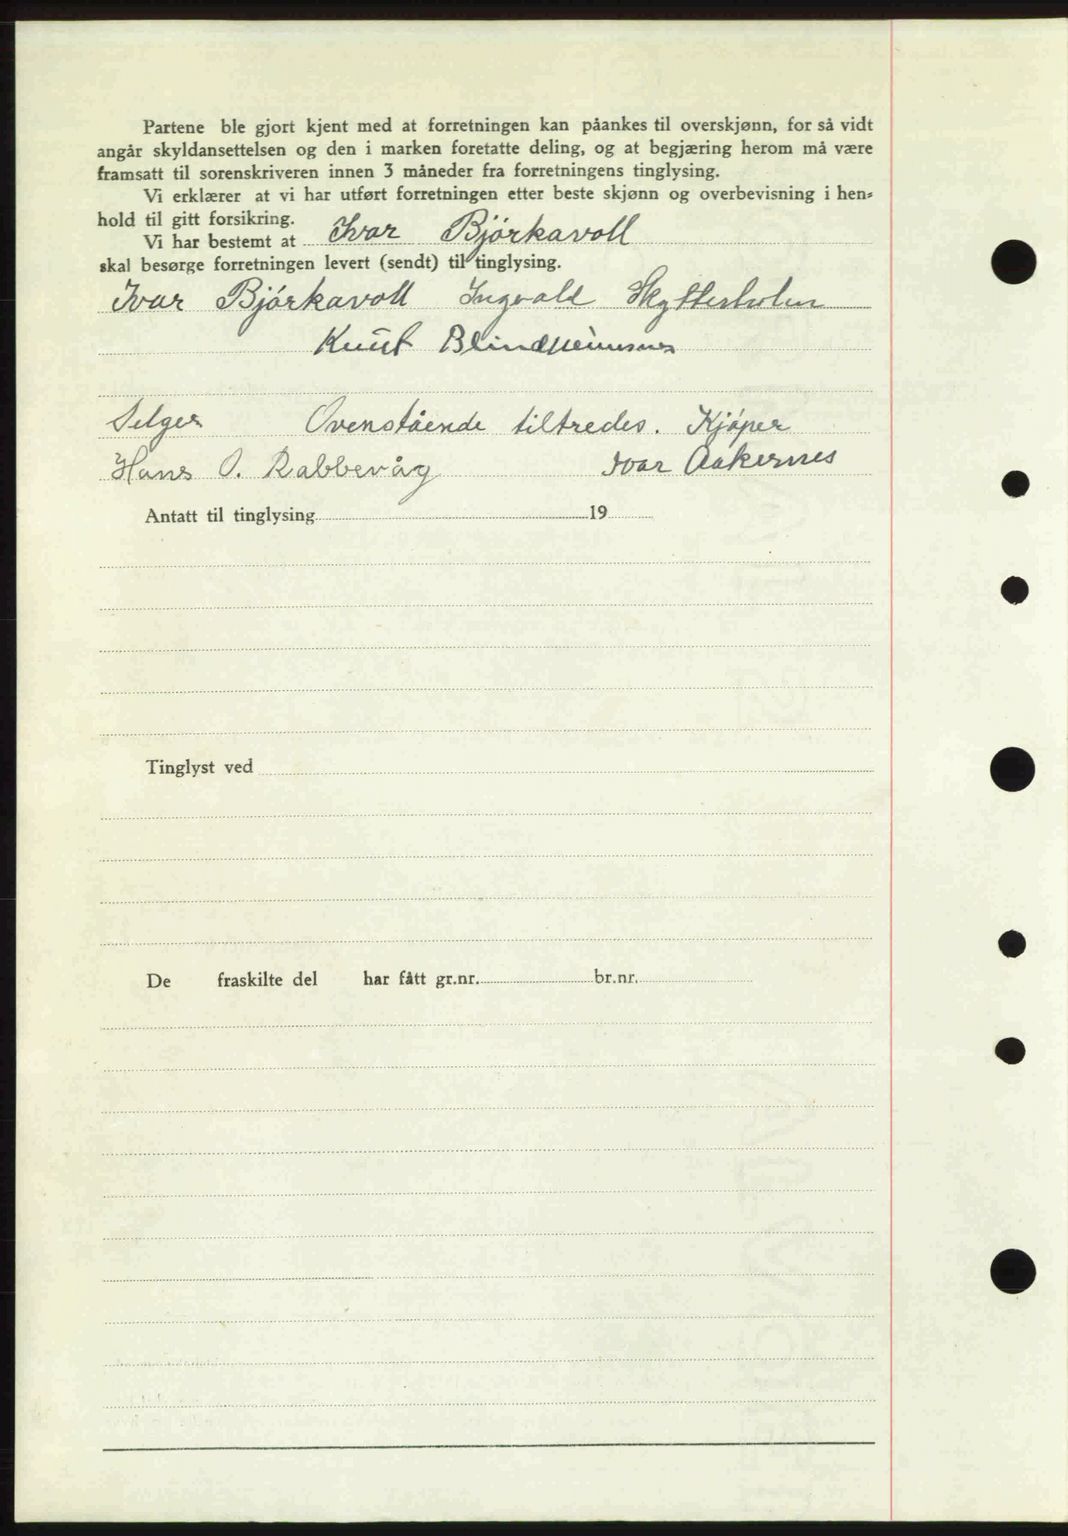 Partene ble gjort kjent med at forretningen kan påankes til overskjønn, for så vidt
angår skyldansettelsen og den i marken foretatte deling, og at begjæring herom må være
framsatt til sorenskriveren innen 3 måneder fra forretningens tinglysing.
Vi erklærer at vi har utført forretningen etter beste skjønn og overbevisning i hen-
hold til gitt forsikring.
Vi har bestemt at Ivar Bjórkavoll
skal besørge forretningen levert (sendt) til tinglysing.
Ivar Bjórkavoll Ingvald Skytterholm
Knut Blindheimsnes
Selger Ovenstående tiltredes. Kjóper
Hans O. Rabbevåg Ivar Aakernes
Antatt til tinglysing 19
Tinglyst ved
De fraskilte del har fått gr.nr. br.nr.